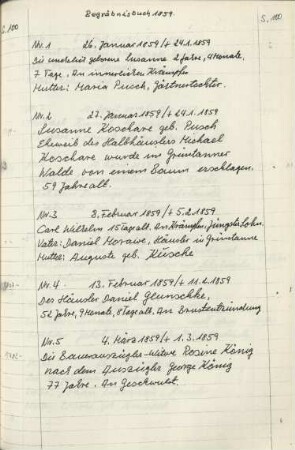 Begräbnisbuch 1859.
S. 100
S. 100
Nr. 1 26. Januar 1859/+ 24.1. 1859
Die unehelich geborene Susanne 2 Jahre, 4 Monate,
7 Tage. An innerlichen Krämpfen
Mutter: Maria Pusch, Gärtnertochter.
Nr. 2 27. Januar 1859/+ 24.1. 1859
Susanne Koschare geb. Pusch
Eheweib des Halbhäuslers Michael
Koschare wurde im Grüntanner
Walde von einem Baum erschlagen.
59 Jahre alt.
Nr. 3 8. Februar 1859/+ 5.2. 1859
Carl Wilhelm 15 Tage alt. An Krämpfen. Jüngster Sohn.
Vater: Daniel Morawe, Häusler in Grüntanne
Mutter: Auguste geb. Küsche
Nr. 4 - 13. Februar 1859/+ 11.2. 1859
Der Häusler Daniel
52 Jahre, 9 Monate, 8 Tage alt. An Brustentzündung
Nr. 5 4. März 1859/+ 1.3. 1859
Die Bauerauszügler-Witwe Rosine König
nach dem Auszügler George König
77 Jahre. An Geschwulst.